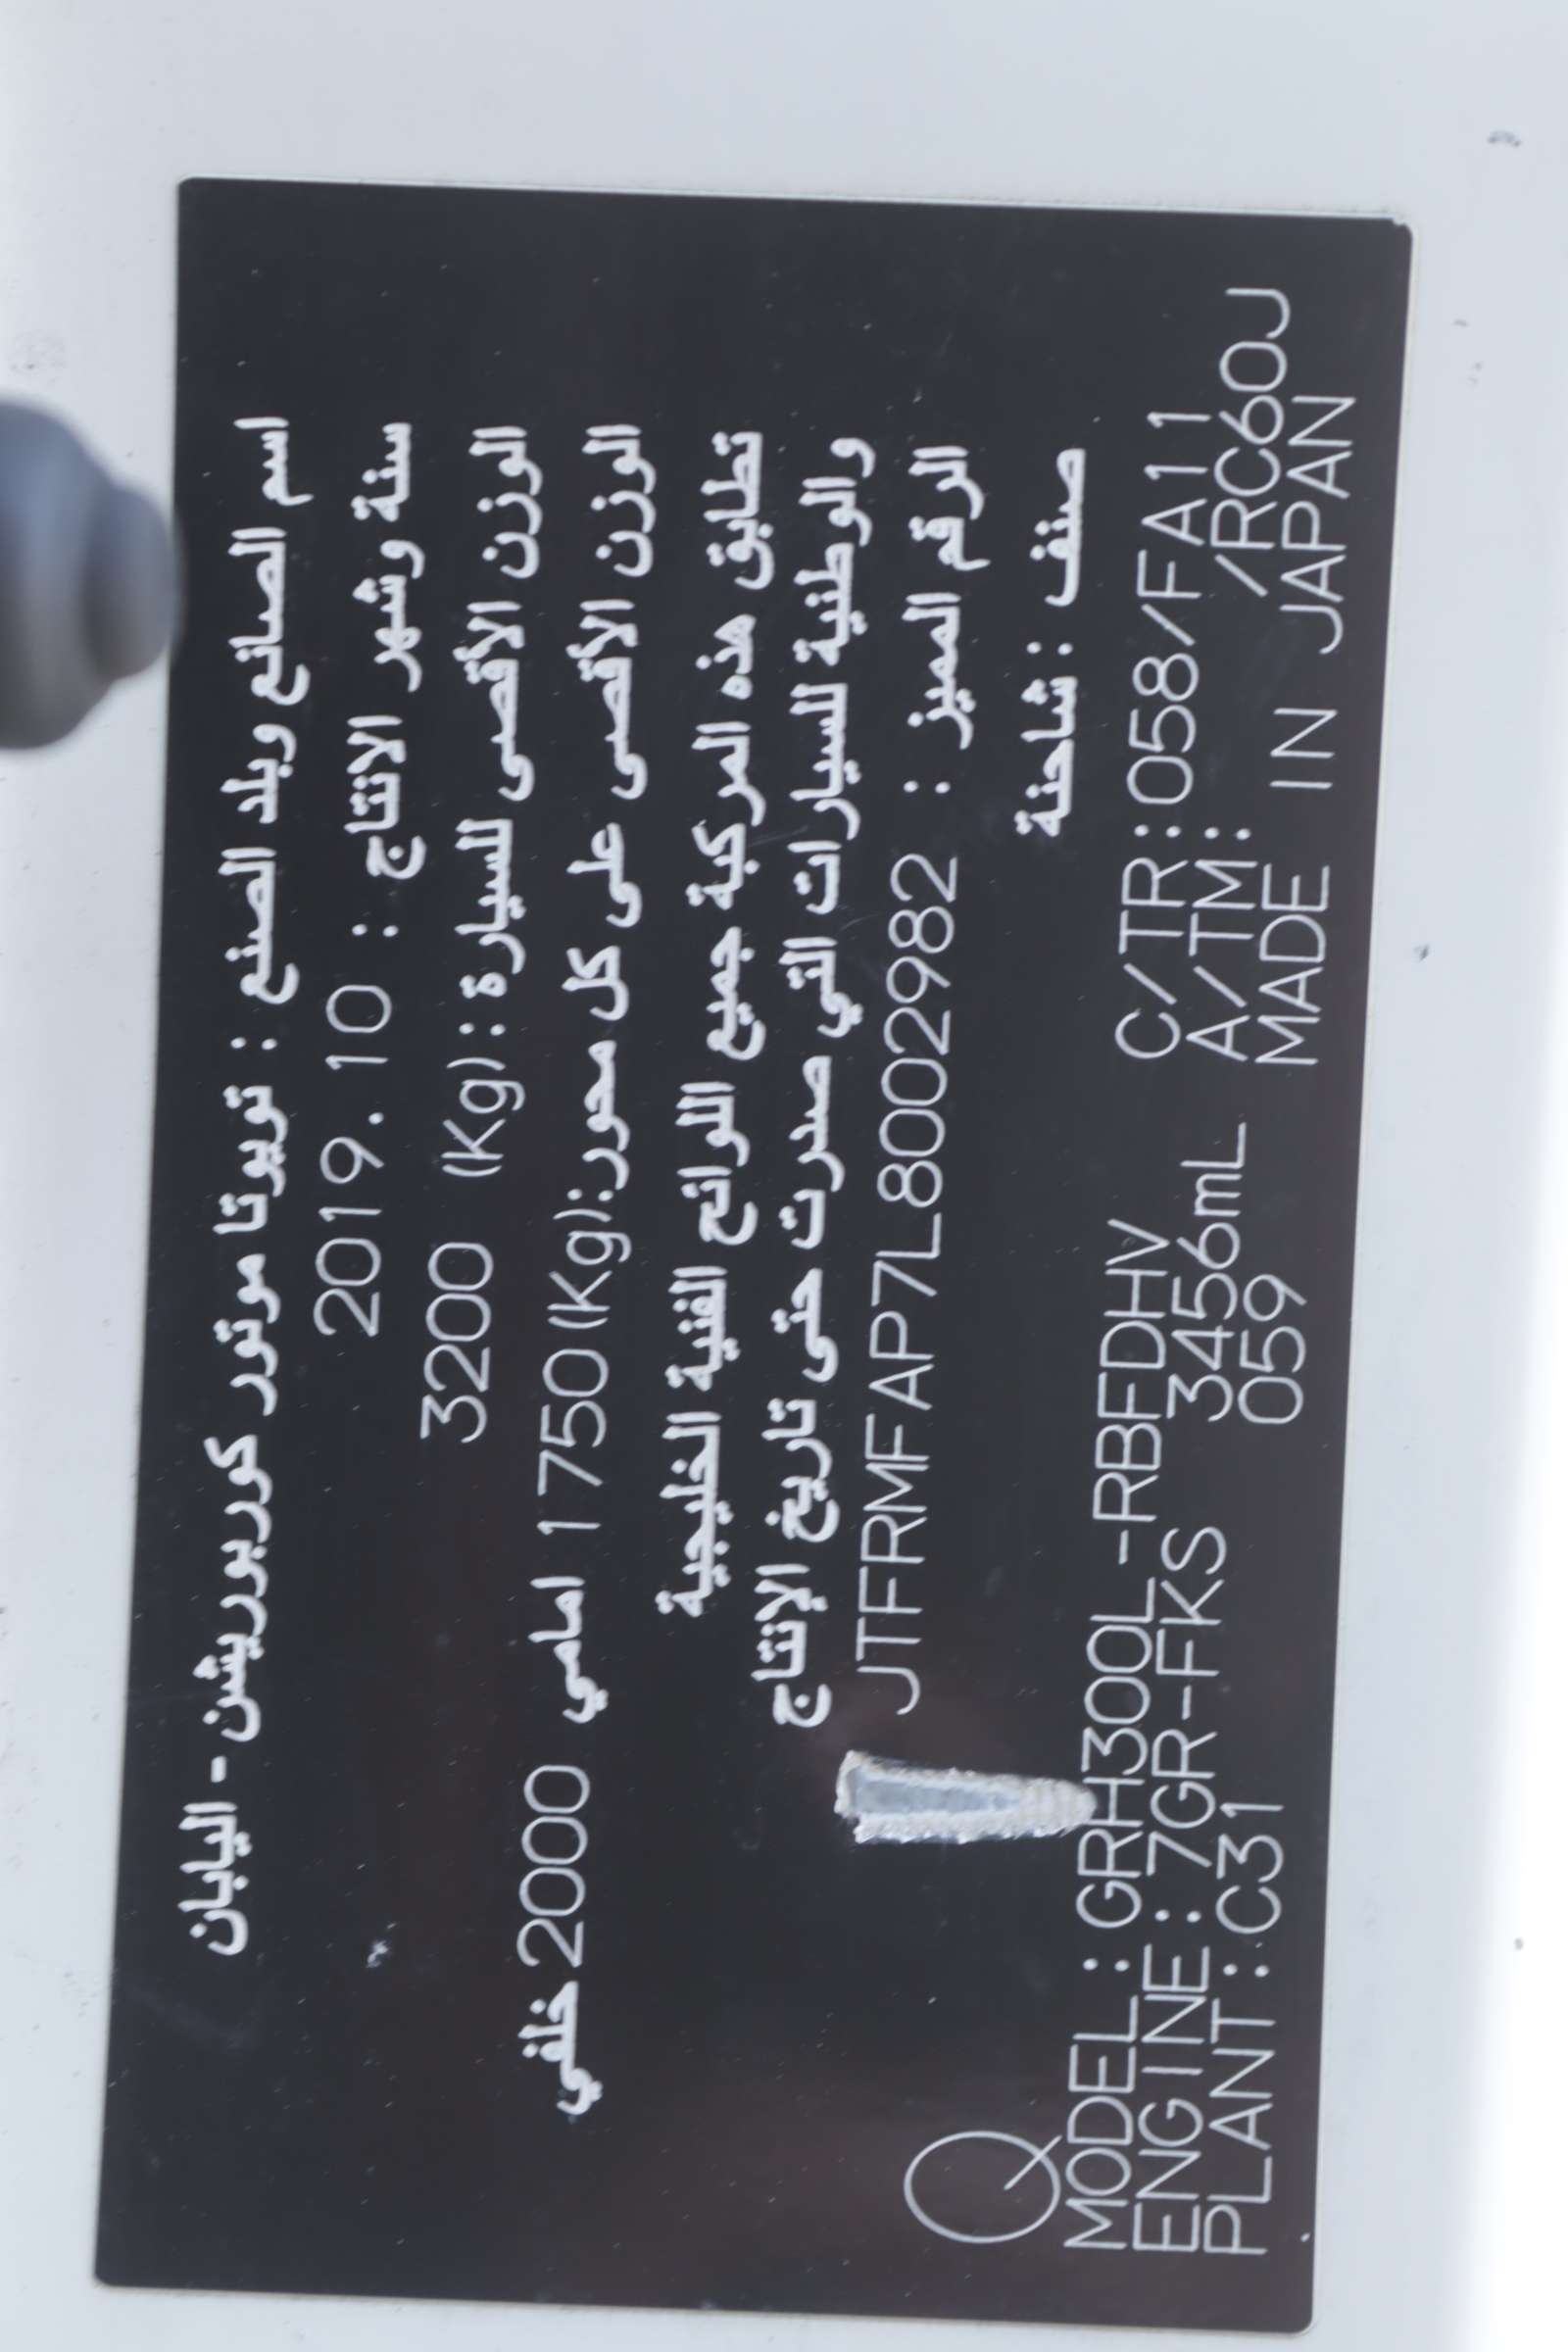 اسم الصانع وبلد الصنع : تويوتا موتور كوربوريشن - اليابان
سنة وشهر الانتاج : 2019.10
الوزن الأقصى للسيارة : (Kg) 3200
الوزن الأقصى على كل محور:(Kg) 1750 امامي 2000 خلفي
تطابق هذه المركبة جميع اللوائح الفنية الخليجية
والوطنية للسيارات التي صدرت حتى تاريخ الإنتاج
الرقم المميز : JTFRMFAP7L8002982
صنف : شاحنة
Q
MODEL:GRH300L-RBFDHV C/TR:058/FA11
ENGINE:7GR-FKS 3456mL A/TM: /RC60J
PLANT:C31 059 MADE IN JAPAN